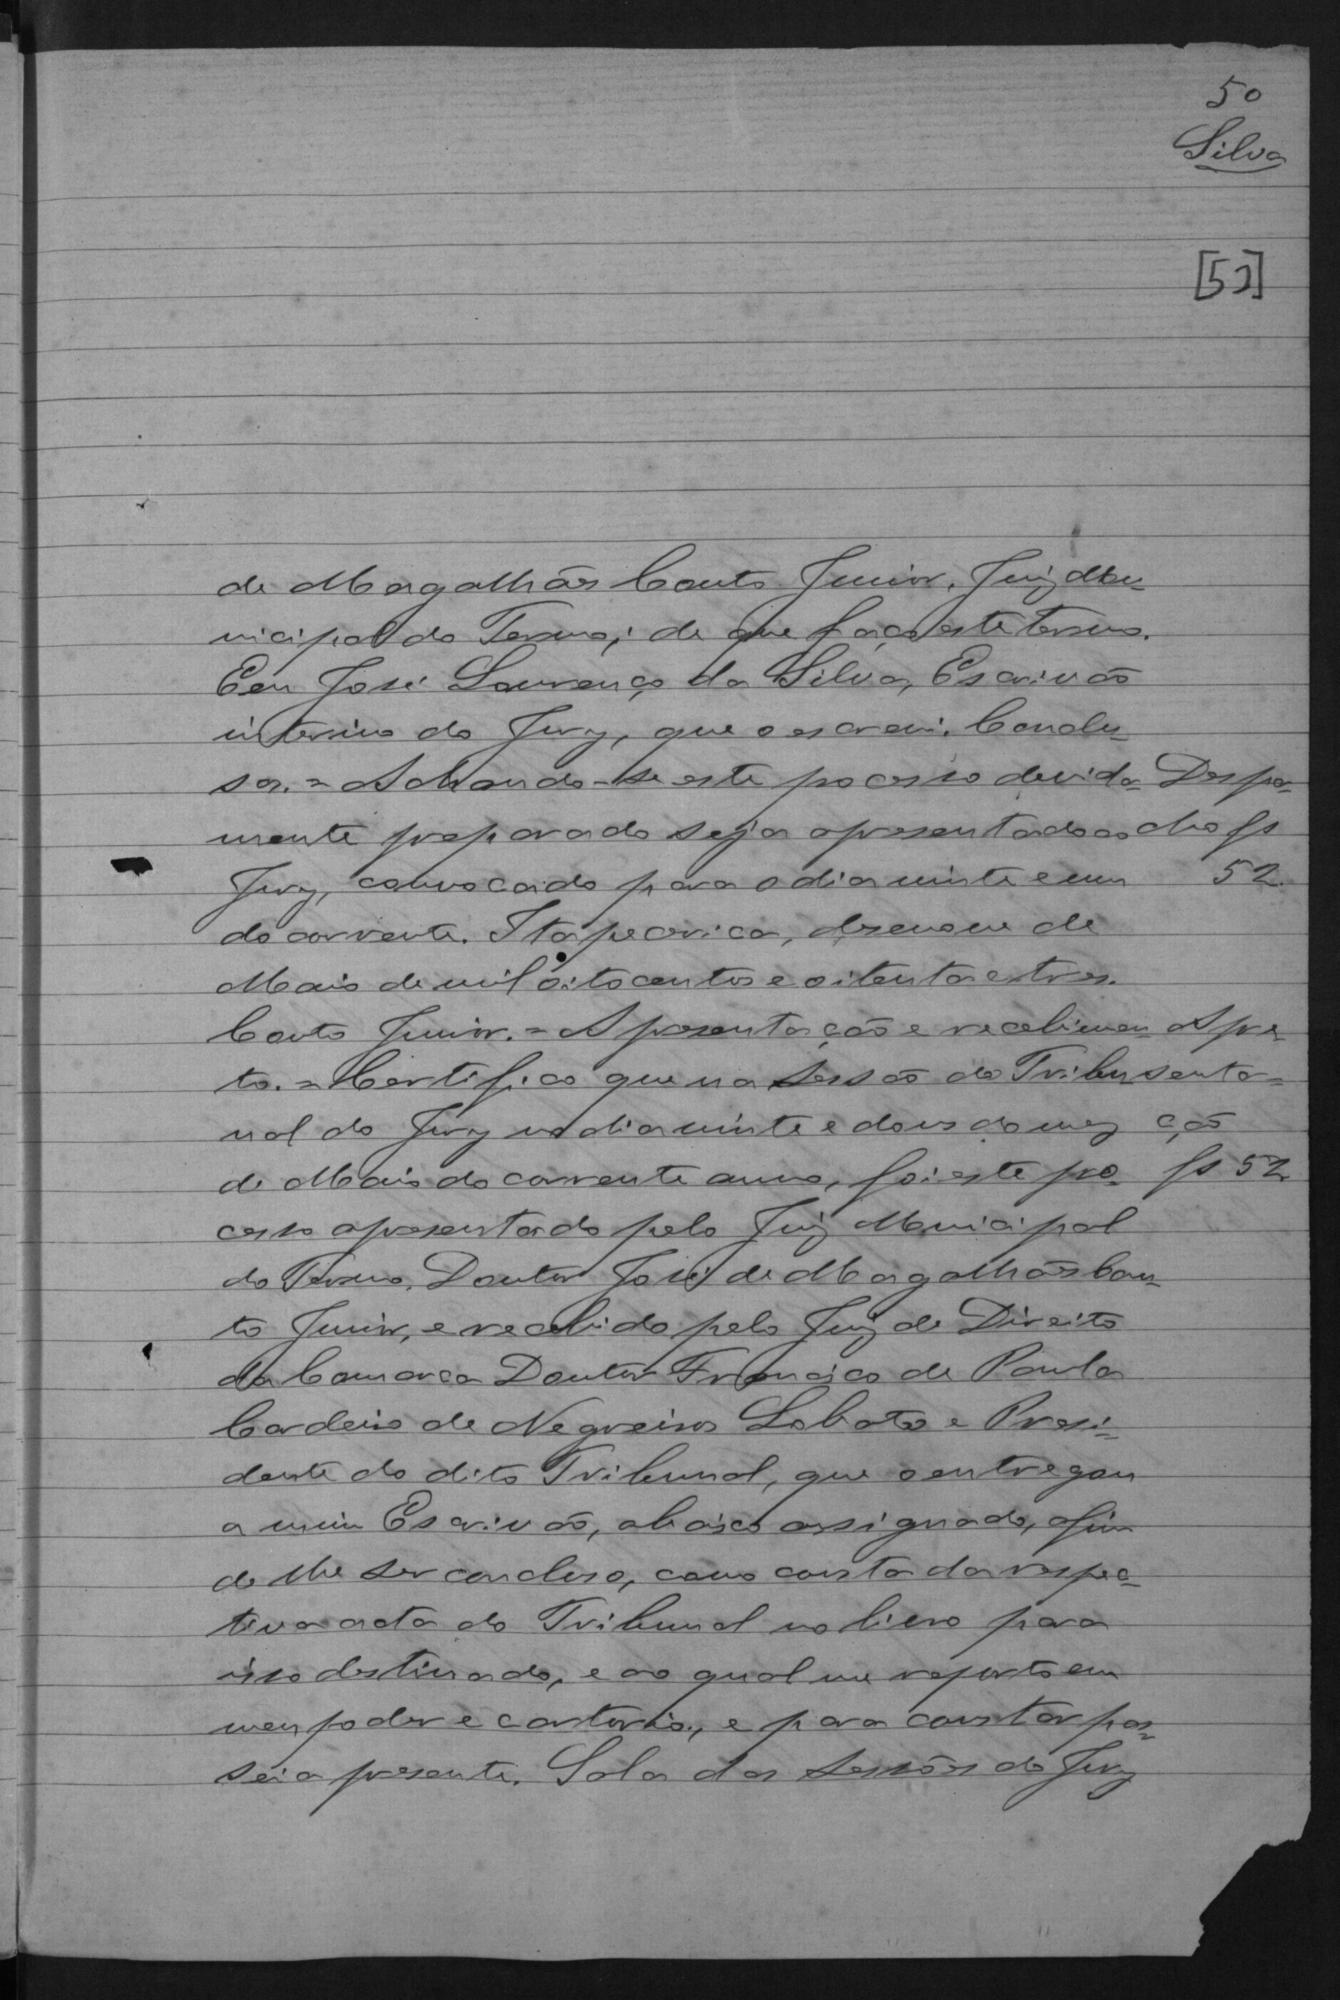 50
Silva
[51]
de Magalhães Couto Junior, Juiz Mu-
nicipal do Termo; de que faço este termo.
Eeu José Lourenço da Silva, Escrivão
interino do Jury, que o escrevi. Conclu-
sos. = Achando-se este pocesso devida-
mente preparado seja apresentado ao
Jury, convocado para o dia vinte e um
do corrente. Itapecerica, desenove de
Maio de mil oitocentos e oitenta e tres.
Couto Junior. = Apresentação e recebimen-
to. = Certifico que na Sessão do Tribu-
nal do Jury no dia vinte e dous do mez
de Maio do corrente anno, foi este pro-
cesso apresentado pelo Juiz Municipal
do Termo, Doutor José de Magalhães Cou-
to Junior, e recebido pelo Juiz de Direito
da Comarca Doutor Francisco de Paula
Cordeiro de Negreiros Lobato e Presi-
dente do dito Tribunal, que o entregou
a mim Escrivão, abaixo assignado, afim
de lhe ser concluso, como consta da respec-
tiva acta do Tribunal no livro para
isso destinado, e ao qual me reporto em
meu poder e cartorio, e para constar pas-
sei a presente. Sala das Sessões do Jury
Despa-
cho fs
52
Apre-
senta-
ção
fs 52